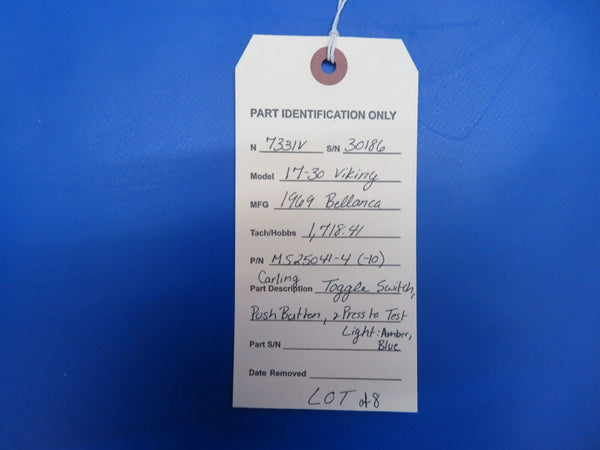 PART IDENTIFICATION ONLY
N 7331V S/N 30186
Model 17-30 Viking
MFG 1969 Bellanca
Tach/Hobbs 1,718.41
P/N MS25041-4 (-10)
Carling
Part Description Toggle Switch,
Push Button, 2 Press to Test
Light: Amber,
Part S/N Blue
Date Removed
LOT of 8